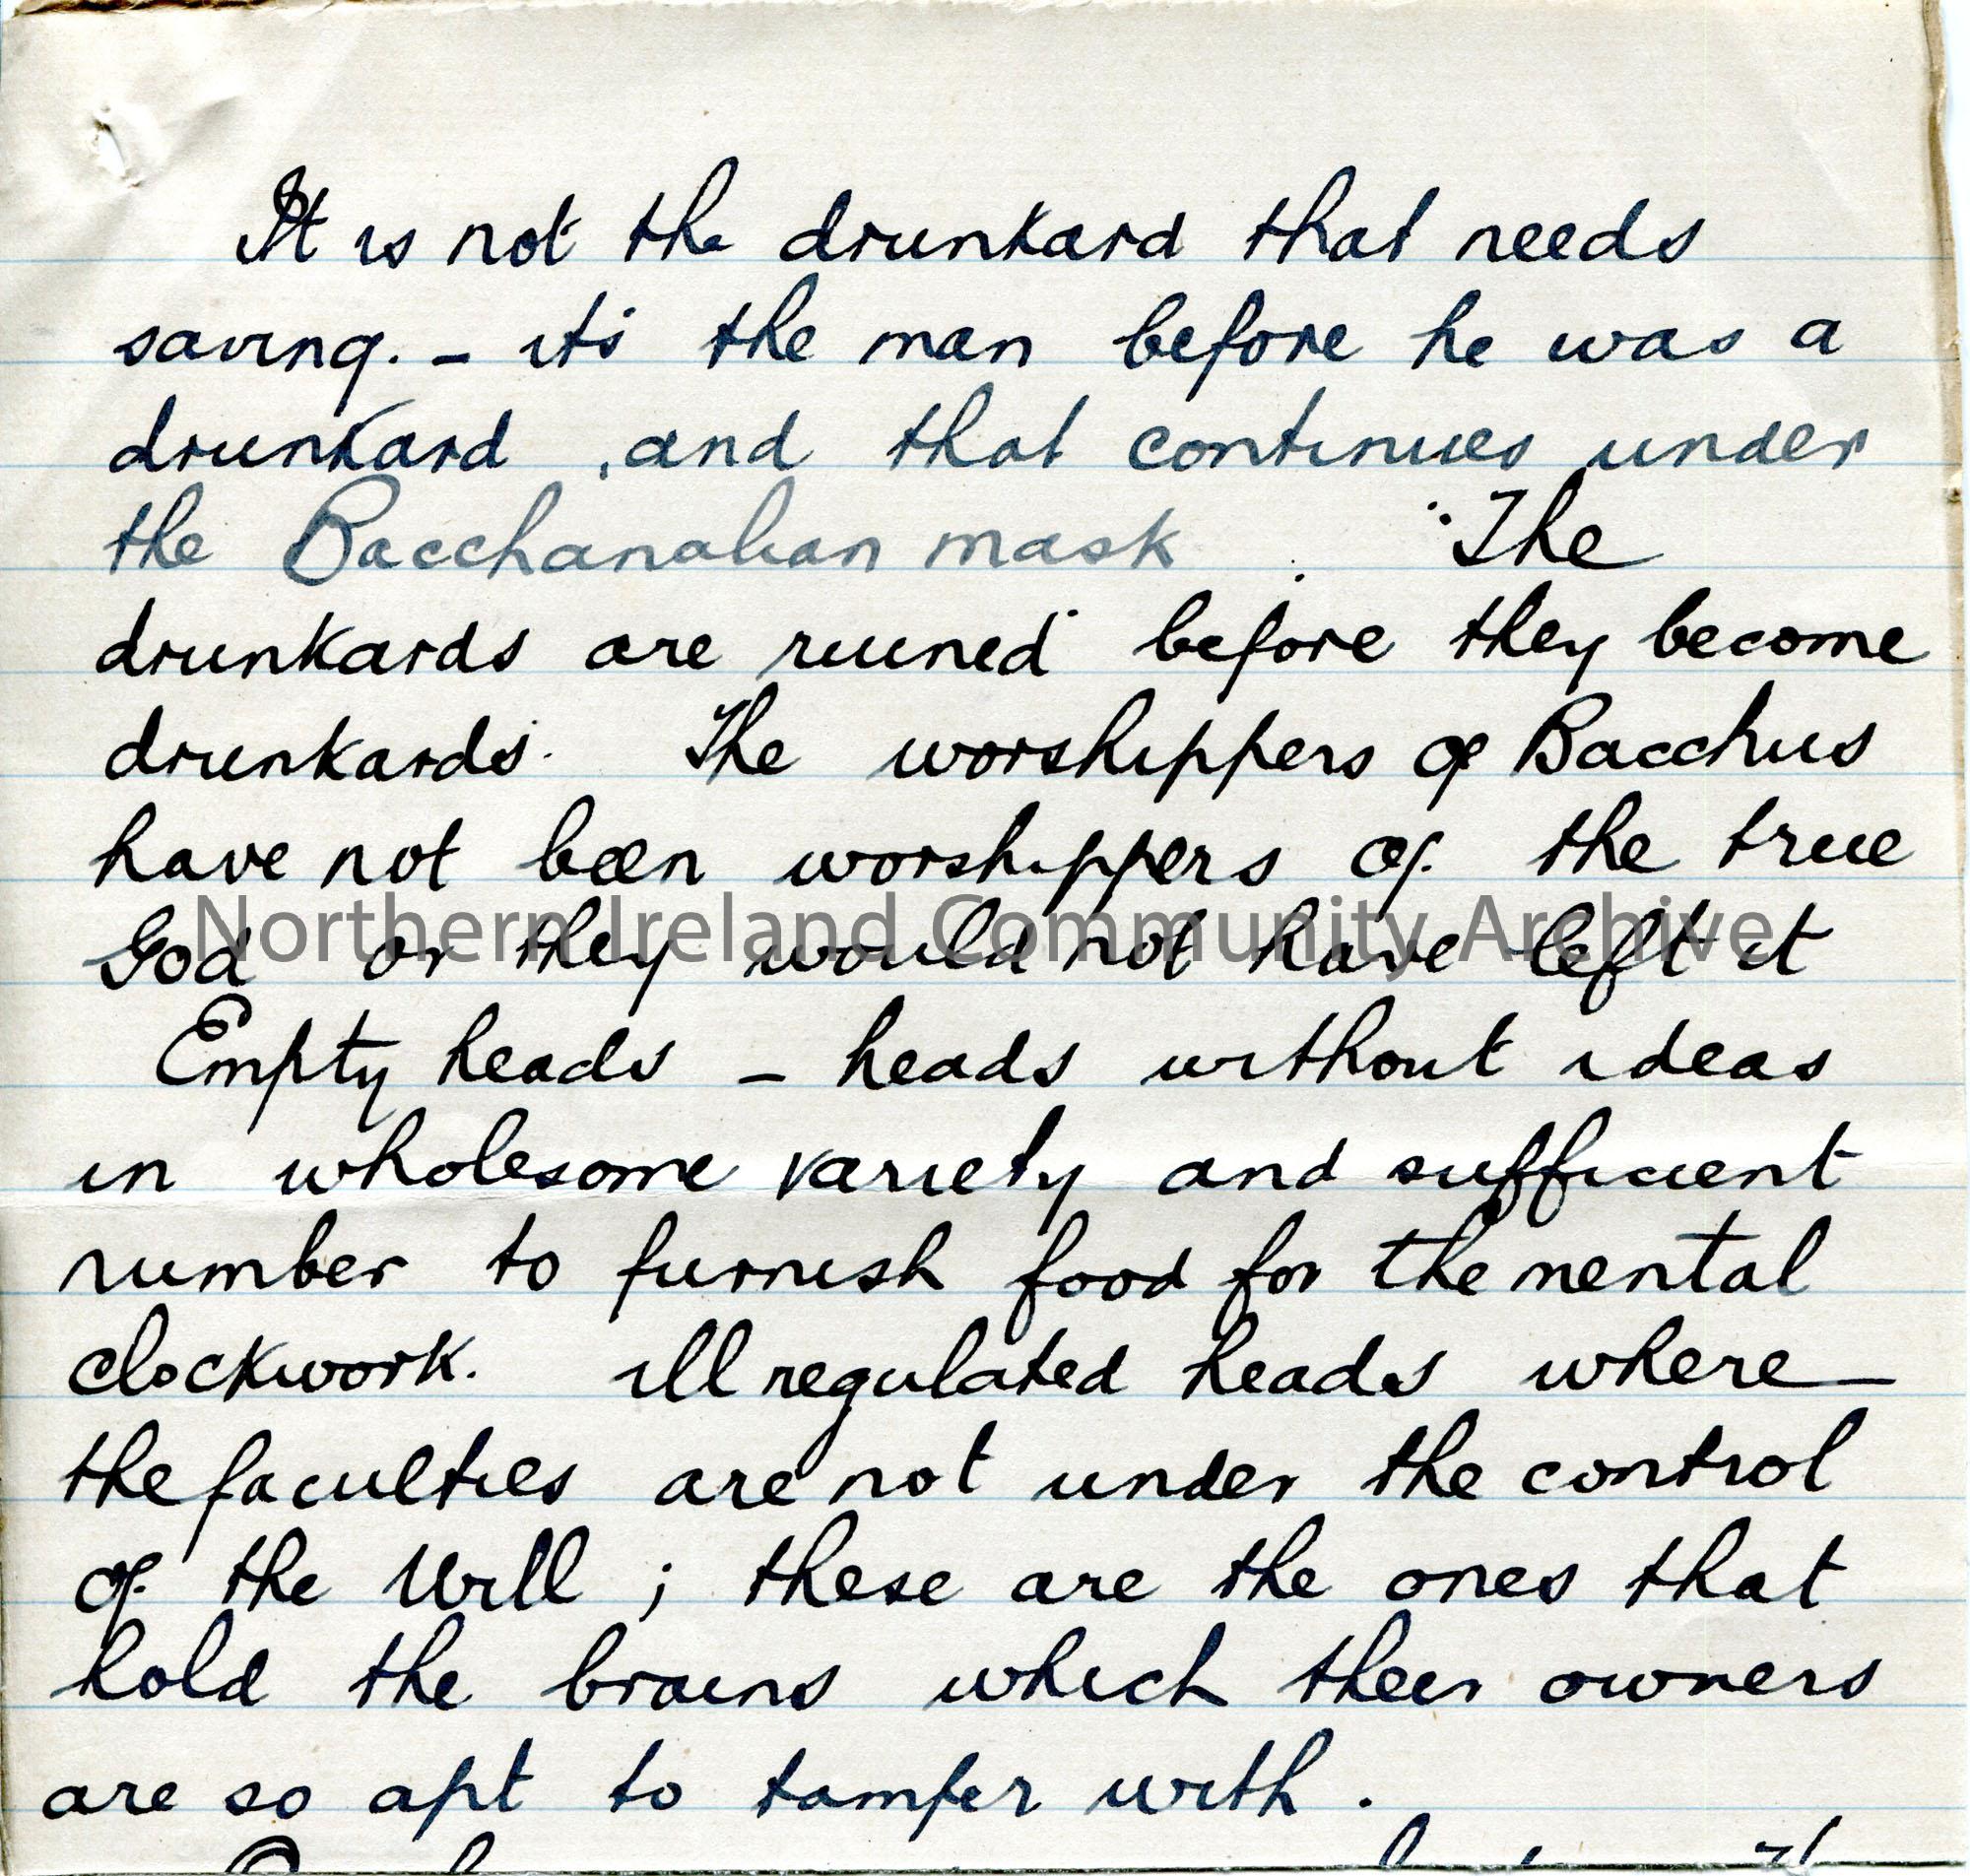 It is not the drunkard that needs
saving. - its the man before he was a
drunkard, and that continues under
the Bacchanalian mask. "The
drunkards are ruined" before they become
drunkards. The worshippers of Bacchus
have not been worshippers of the true
God or they would not have left it
Northern Ireland Community Archive
Empty heads - heads without ideas
in wholesome variety and sufficient
number to furnish food for the mental
clockwork. ill regulated heads where
the faculties are not under the control
of the Will ; these are the ones that
hold the brains which their owners
are so apt to tamper with.